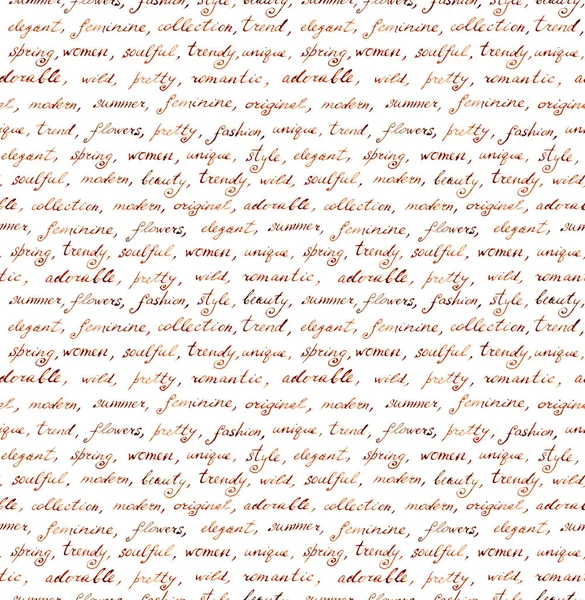 summer, flowers, fashion, style, beauty, summer, flowers, fashion, style, beauty,
elegant, feminine, collection, trend, elegant, feminine, collection, trend,
spring, women, soulful, trendy, unique, spring, women, soulful, trendy, unique,
dorable, wild, pretty, romantic, adorable, wild, pretty, romantic, a
el, modern, summer, feminine, original, modern, summer, feminine, origina
que, trend, flowers, pretty, fashion, unique, trend, flowers, pretty, fashion, un
elegant, spring, women, unique, style, elegant, spring, women, unique, style,
, soulful, modern, beauty, trendy, wild, soulful, modern, beauty, trendy, wild,
ble, collection, modern, original, adorable, collection, modern, original, adora
mmer, feminine, flowers, elegant, summer, feminine, flowers, elegant, sum
spring, trendy, soulful, women, unique, spring, trendy, soulful, women, unique,
tic, adorable, pretty, wild, romantic, adorable, pretty, wild, roman
summer, flowers, fashion, style, beauty, summer, flowers, fashion, style, beauty,
elegant, feminine, collection, trend, elegant, feminine, collection, trend,
spring, women, soulful, trendy, unique, spring, women, soulful, trendy, unique,
dorable, wild, pretty, romantic, adorable, wild, pretty, romantic, a
el, modern, summer, feminine, original, modern, summer, feminine, origina
que, trend, flowers, pretty, fashion, unique, trend, flowers, pretty, fashion, un
elegant, spring, women, unique, style, elegant, spring, women, unique, style,
, soulful, modern, beauty, trendy, wild, soulful, modern, beauty, trendy, wild,
ble, collection, modern, original, adorable, collection, modern, original, adora
mmer, feminine, flowers, elegant, summer, feminine, flowers, elegant, sum
spring, trendy, soulful, women, unique, spring, trendy, soulful, women, unique,
tic, adorable, pretty, wild, romantic, adorable, pretty, wild, roman
summer, flowers, fashion, style, beauty, summer, flowers, fashion, style, beauty,